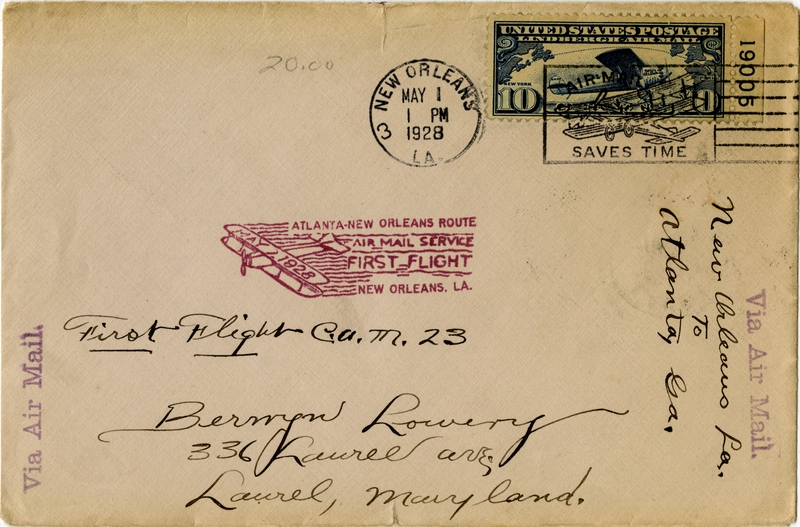 20.00
NEW ORLEANS
MAY 1
1 PM
1928
LA.
3
UNITED STATES POSTAGE
LINDBERGH AIR MAIL
NEW YORK
10
19005
AIR MAIL
SAVES TIME
ATLANTA-NEW ORLEANS ROUTE
AIR MAIL SERVICE
MAY 1928
FIRST FLIGHT
NEW ORLEANS, LA.
First Flight C.A.M. 23
Lowery
336 Laurel ave,
Laurel, Maryland.
New Orleans La.
To
Atlanta Ga.
Via Air Mail.
Via Air Mail.